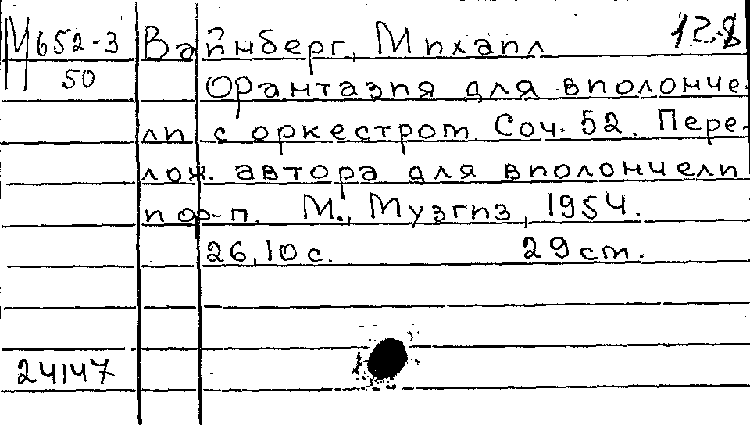 М652-3 Вайнберг, Михаил 128
50
Фантазия для виолонче-
ли с оркестром Соч. 52. Пере-
лож. автора для виолончели
и ф-п. М., Музгиз, 1954.
26,10 с. 29 см.
24147